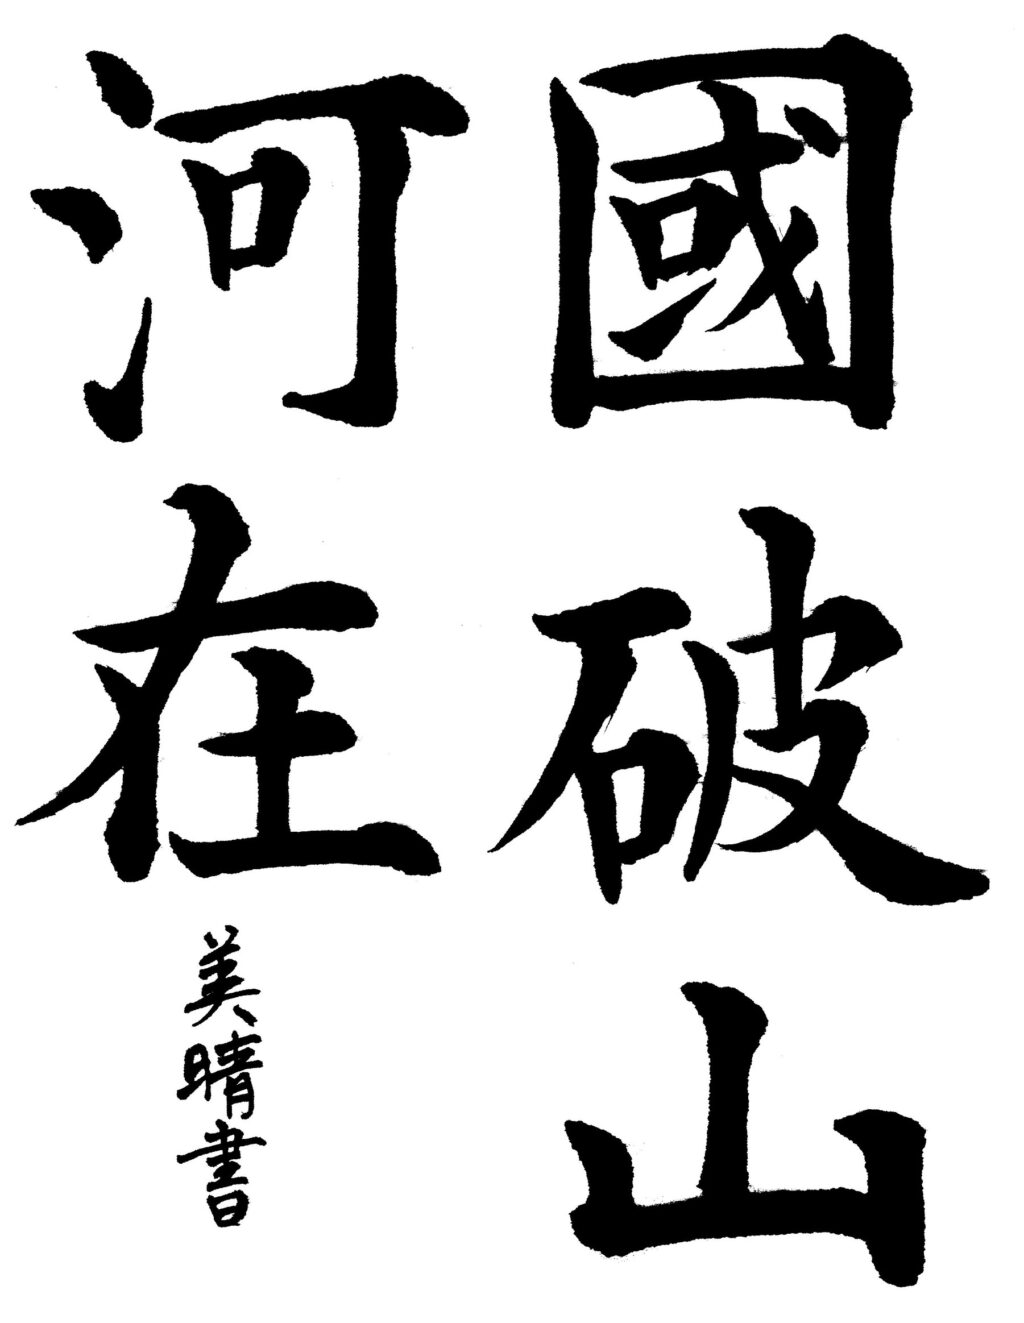 國破山
河在
美晴書